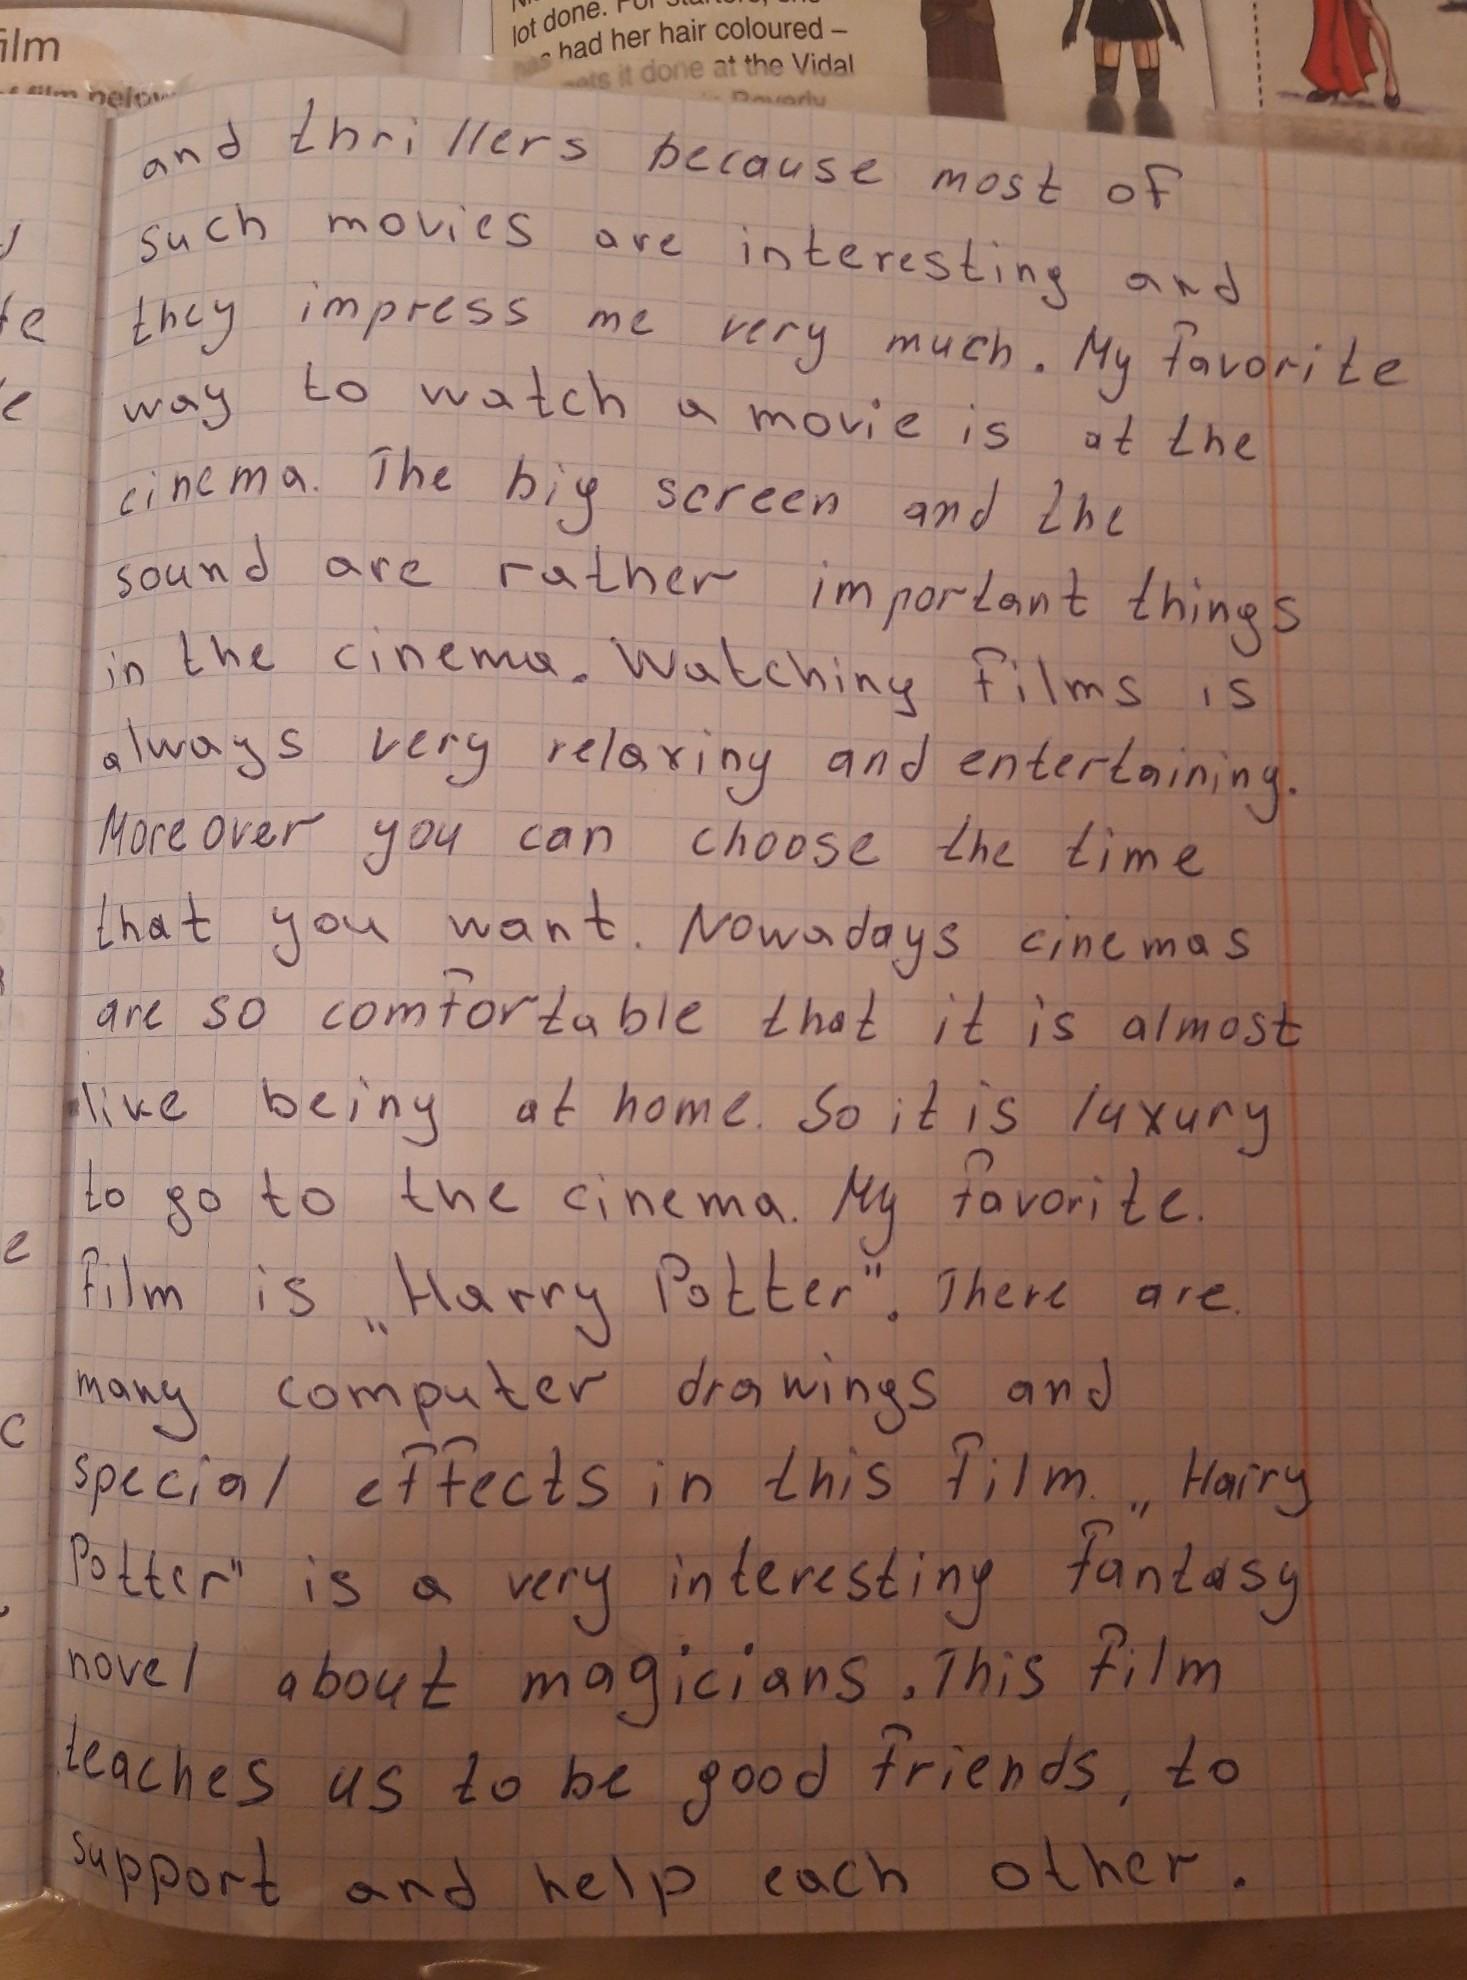 film
film below
lot done. For
has had her hair coloured –
gets it done at the Vidal
and thrillers because most of
such movies are interesting and
they impress me very much. My favorite
way to watch a movie is at the
cinema. The big screen and the
sound are rather important things
in the cinema. Watching films is
always very relaxing and entertaining.
Moreover you can choose the time
that you want. Nowadays cinemas
are so comfortable that it is almost
like being at home. So it is luxury
to go to the cinema. My favorite.
film is „Harry Potter". There are.
many computer drawings and
special effects in this film. „Harry
Potter" is a very interesting fantasy
novel about magicians. This film
teaches us to be good friends, to
support and help each other.